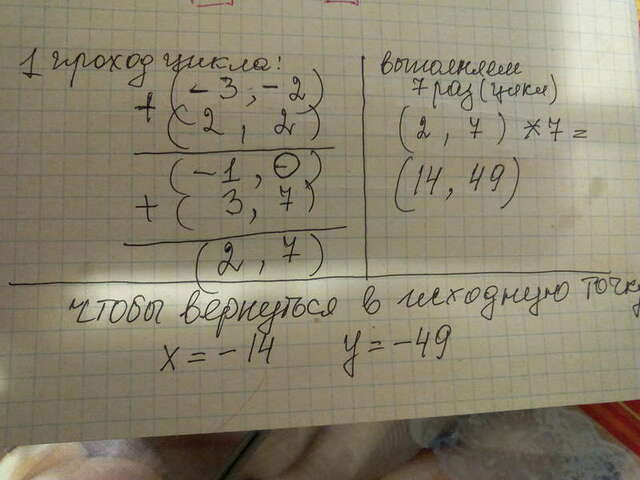 1 проход цикла:
+ (-3, -2)
(2, 2)
(-1, 0)
+ (3, 7)
(2, 7)
выполняем
7 раз (цикл)
(2, 7) *7 =
(14, 49)
чтобы вернуться в исходную точку
x = -14 y = -49